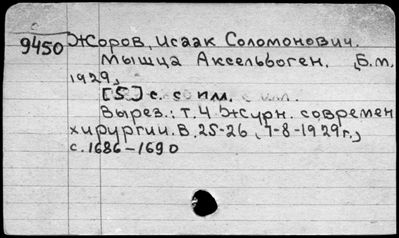 9450 Жоров, Исаак Соломонович.
Мышца Аксельвоген. [Б.м.
1929.]
[5] с. с илл.
Вырез.: т.Ч. Журн. современ
хирургии. В. 25-26, 7-8-1929г.,
с. 1686-1690